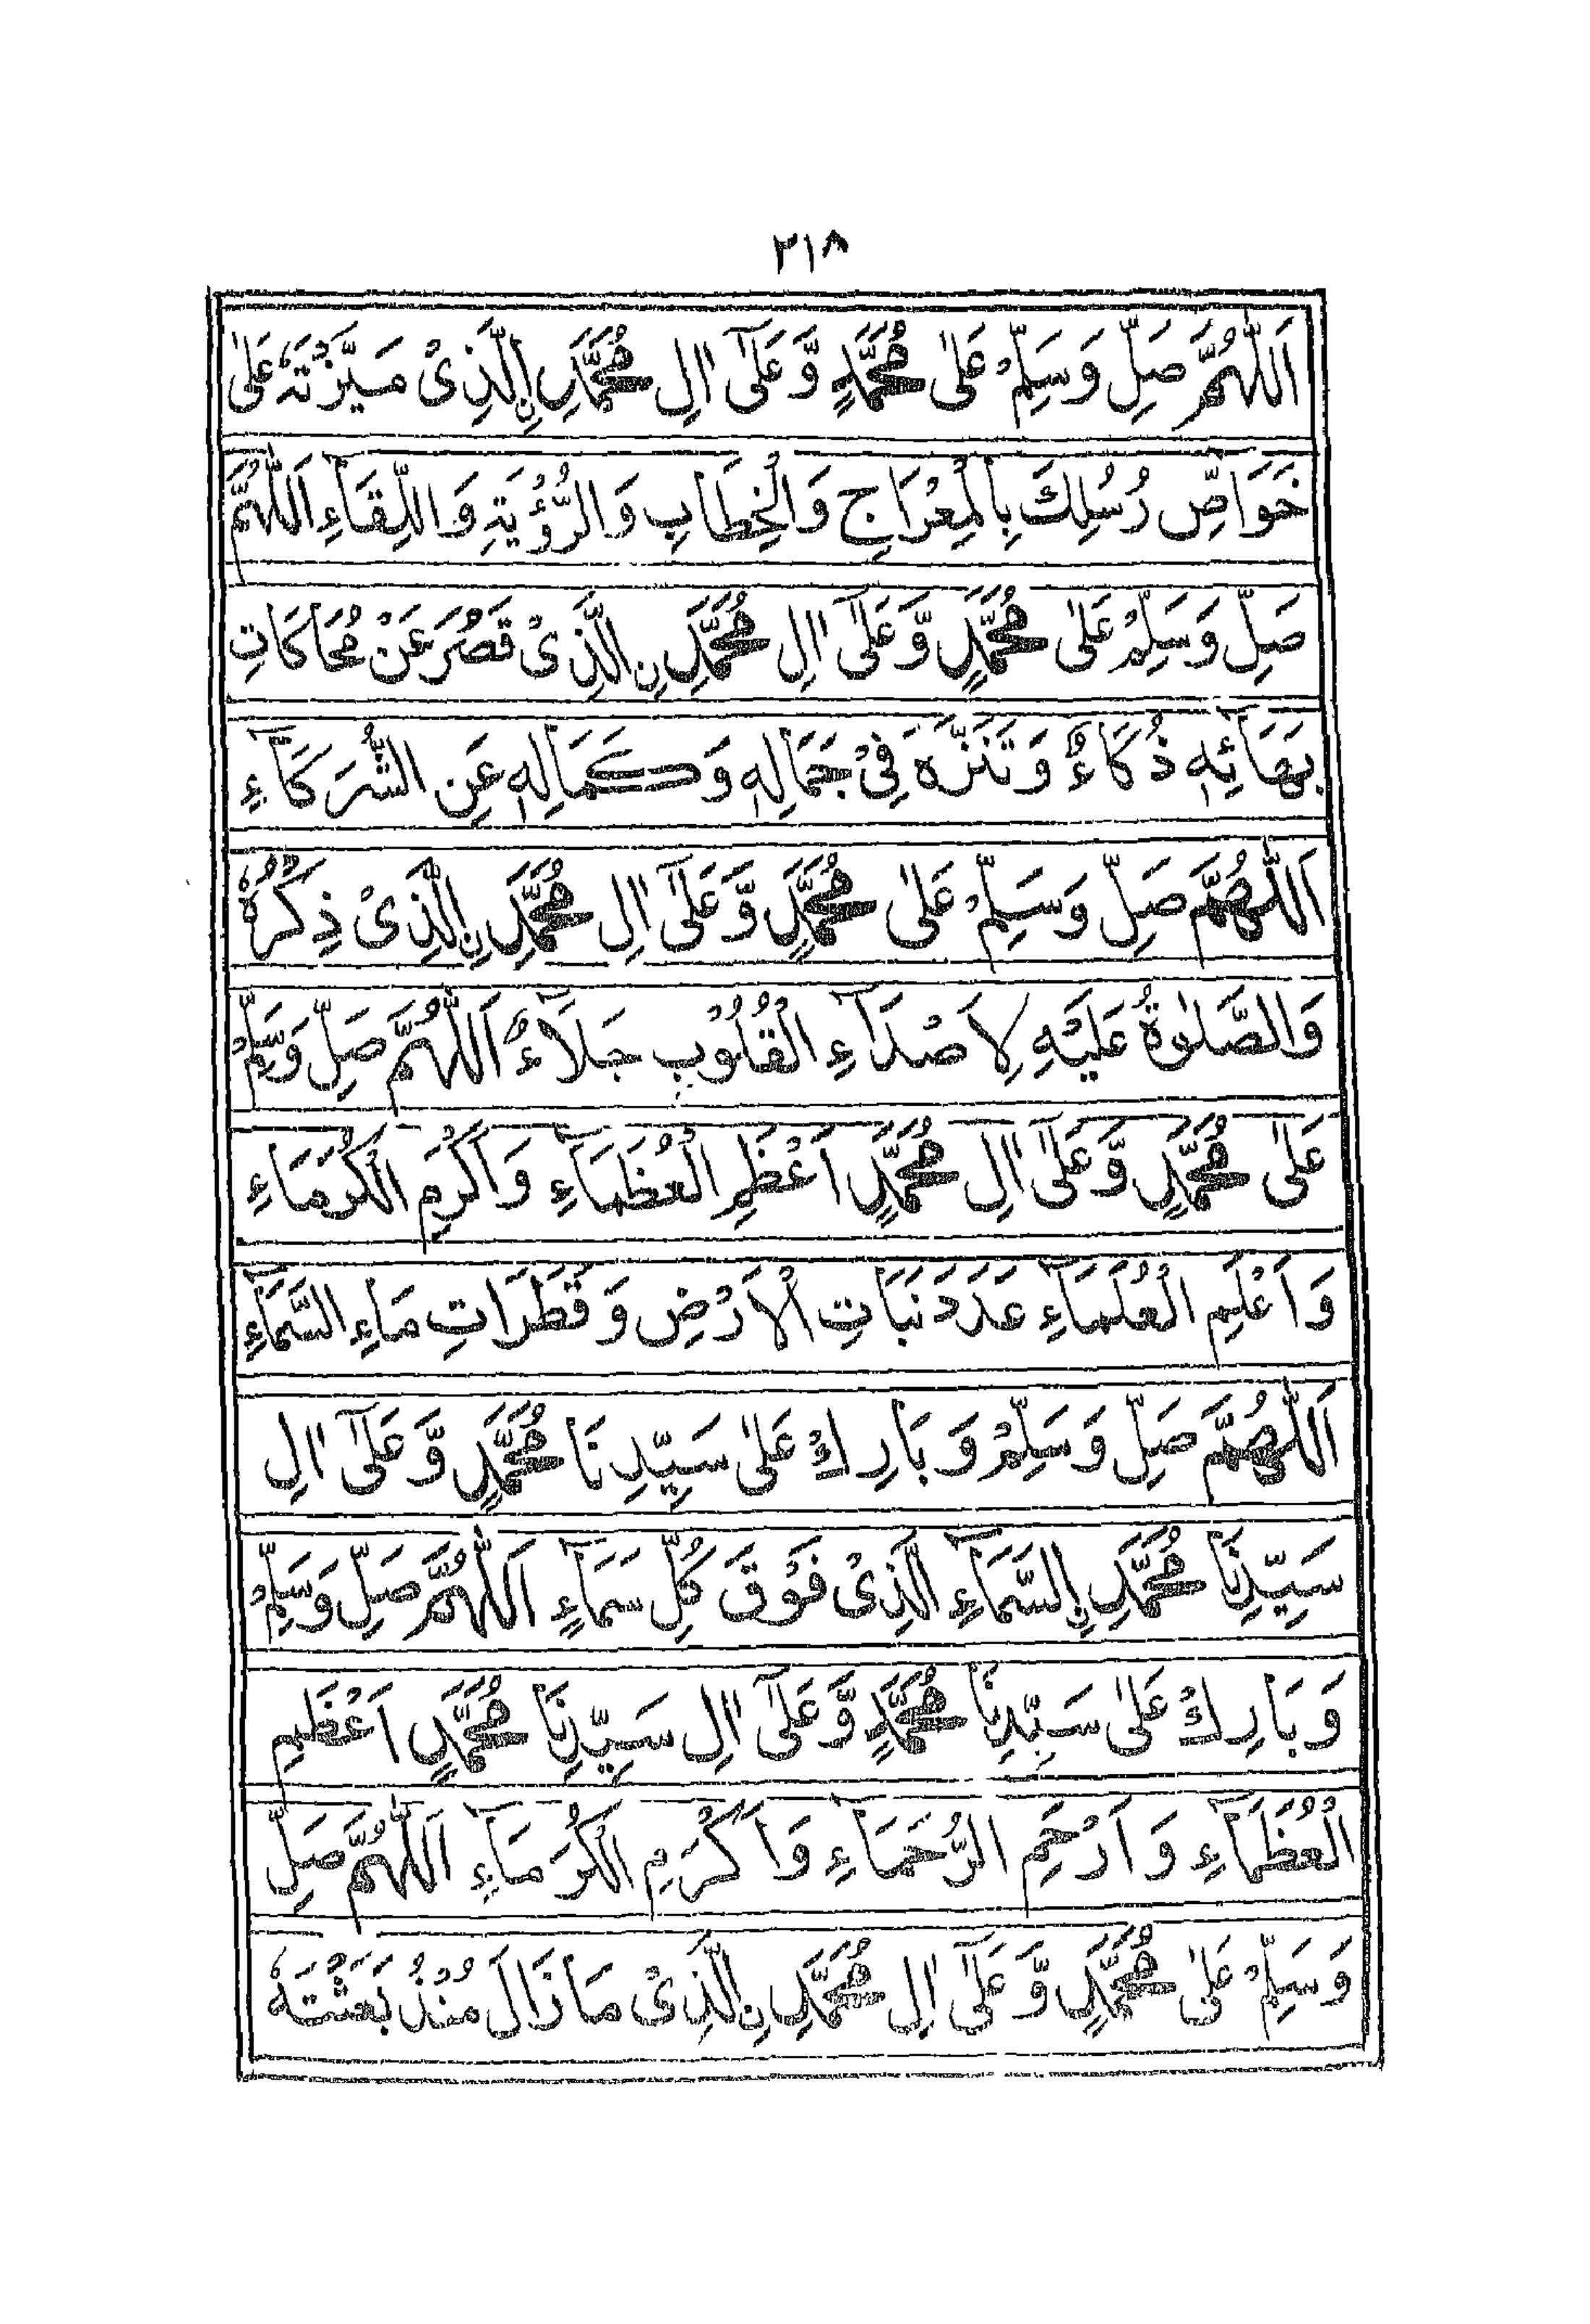 ٢١٨
اَللّٰهُمَّ صَلِّ وَسَلِّمْ عَلٰى مُحَمَّدٍ وَّعَلٰٓى اٰلِ مُحَمَّدِ نِ الَّذِىْ مَيَّزْتَهٗ عَلٰى
خَوَاصِّ رُسُلِكَ بِالْمِعْرَاجِ وَالْخِطَابِ وَالرُّؤْيَةِ وَاللِّقَآءِ اَللّٰهُمَّ
صَلِّ وَسَلِّمْ عَلٰى مُحَمَّدٍ وَّعَلٰٓى اٰلِ مُحَمَّدِ نِ الَّذِىْ قَصُرَ عَنْ مُحَاكَاتِ
بَهَآئِهٖ ذُكَآءٌ وَتَنَزَّهَ فِىْ جَمَالِهٖ وَكَمَالِهٖ عَنِ الشُّرَكَآءِ
اَللّٰهُمَّ صَلِّ وَسَلِّمْ عَلٰى مُحَمَّدٍ وَّعَلٰٓى اٰلِ مُحَمَّدِ نِ الَّذِىْ ذِكْرُهٗ
وَالصَّلٰوةُ عَلَيْهِ لِاَصْدَآءِ الْقُلُوْبِ جَلَآءٌ اَللّٰهُمَّ صَلِّ وَسَلِّمْ
عَلٰى مُحَمَّدٍ وَّعَلٰٓى اٰلِ مُحَمَّدٍ اَعْظَمِ الْعُظَمَآءِ وَاَكْرَمِ الْكُرَمَاءِ
وَاَعْلَمِ الْعُلَمَآءِ عَدَدَ نَبَاتِ الْاَرْضِ وَقَطَرَاتِ مَاءِ السَّمَآءِ
اَللّٰهُمَّ صَلِّ وَسَلِّمْ وَبَارِكْ عَلٰى سَيِّدِنَا مُحَمَّدٍ وَّعَلٰٓى اٰلِ
سَيِّدِنَا مُحَمَّدِ نِ السَّمَآءِ الَّذِىْ فَوْقَ كُلِّ سَمَآءٍ اَللّٰهُمَّ صَلِّ وَسَلِّمْ
وَبَارِكْ عَلٰى سَيِّدِنَا مُحَمَّدٍ وَّعَلٰٓى اٰلِ سَيِّدِنَا مُحَمَّدٍ اَعْظَمِ
الْعُظَمَآءِ وَاَرْحَمِ الرُّحَمَآءِ وَاَكْرَمِ الْكُرَمَآءِ اَللّٰهُمَّ صَلِّ
وَسَلِّمْ عَلٰى مُحَمَّدٍ وَّعَلٰٓى اٰلِ مُحَمَّدِ نِ الَّذِىْ مَا زَالَ مُنْذُ بَعَثْتَهٗ